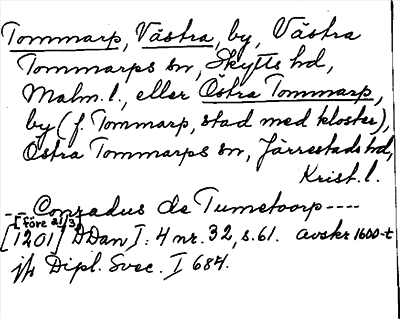 Tommarp, Västra, by, Västra
Tommarps sn, Skytts hd,
Malm. l., eller Östra Tommarp,
by (f. Tommarp, stad med kloster),
Östra Tommarps sn, Järrestads hd,
Krist. l.
--- Conradus de Tumetoorp ----
[före 21/3]
[1201] DDan I: 4 nr. 32, s. 61. avskr 1600-t
jfr Dipl. Svec. I 684.